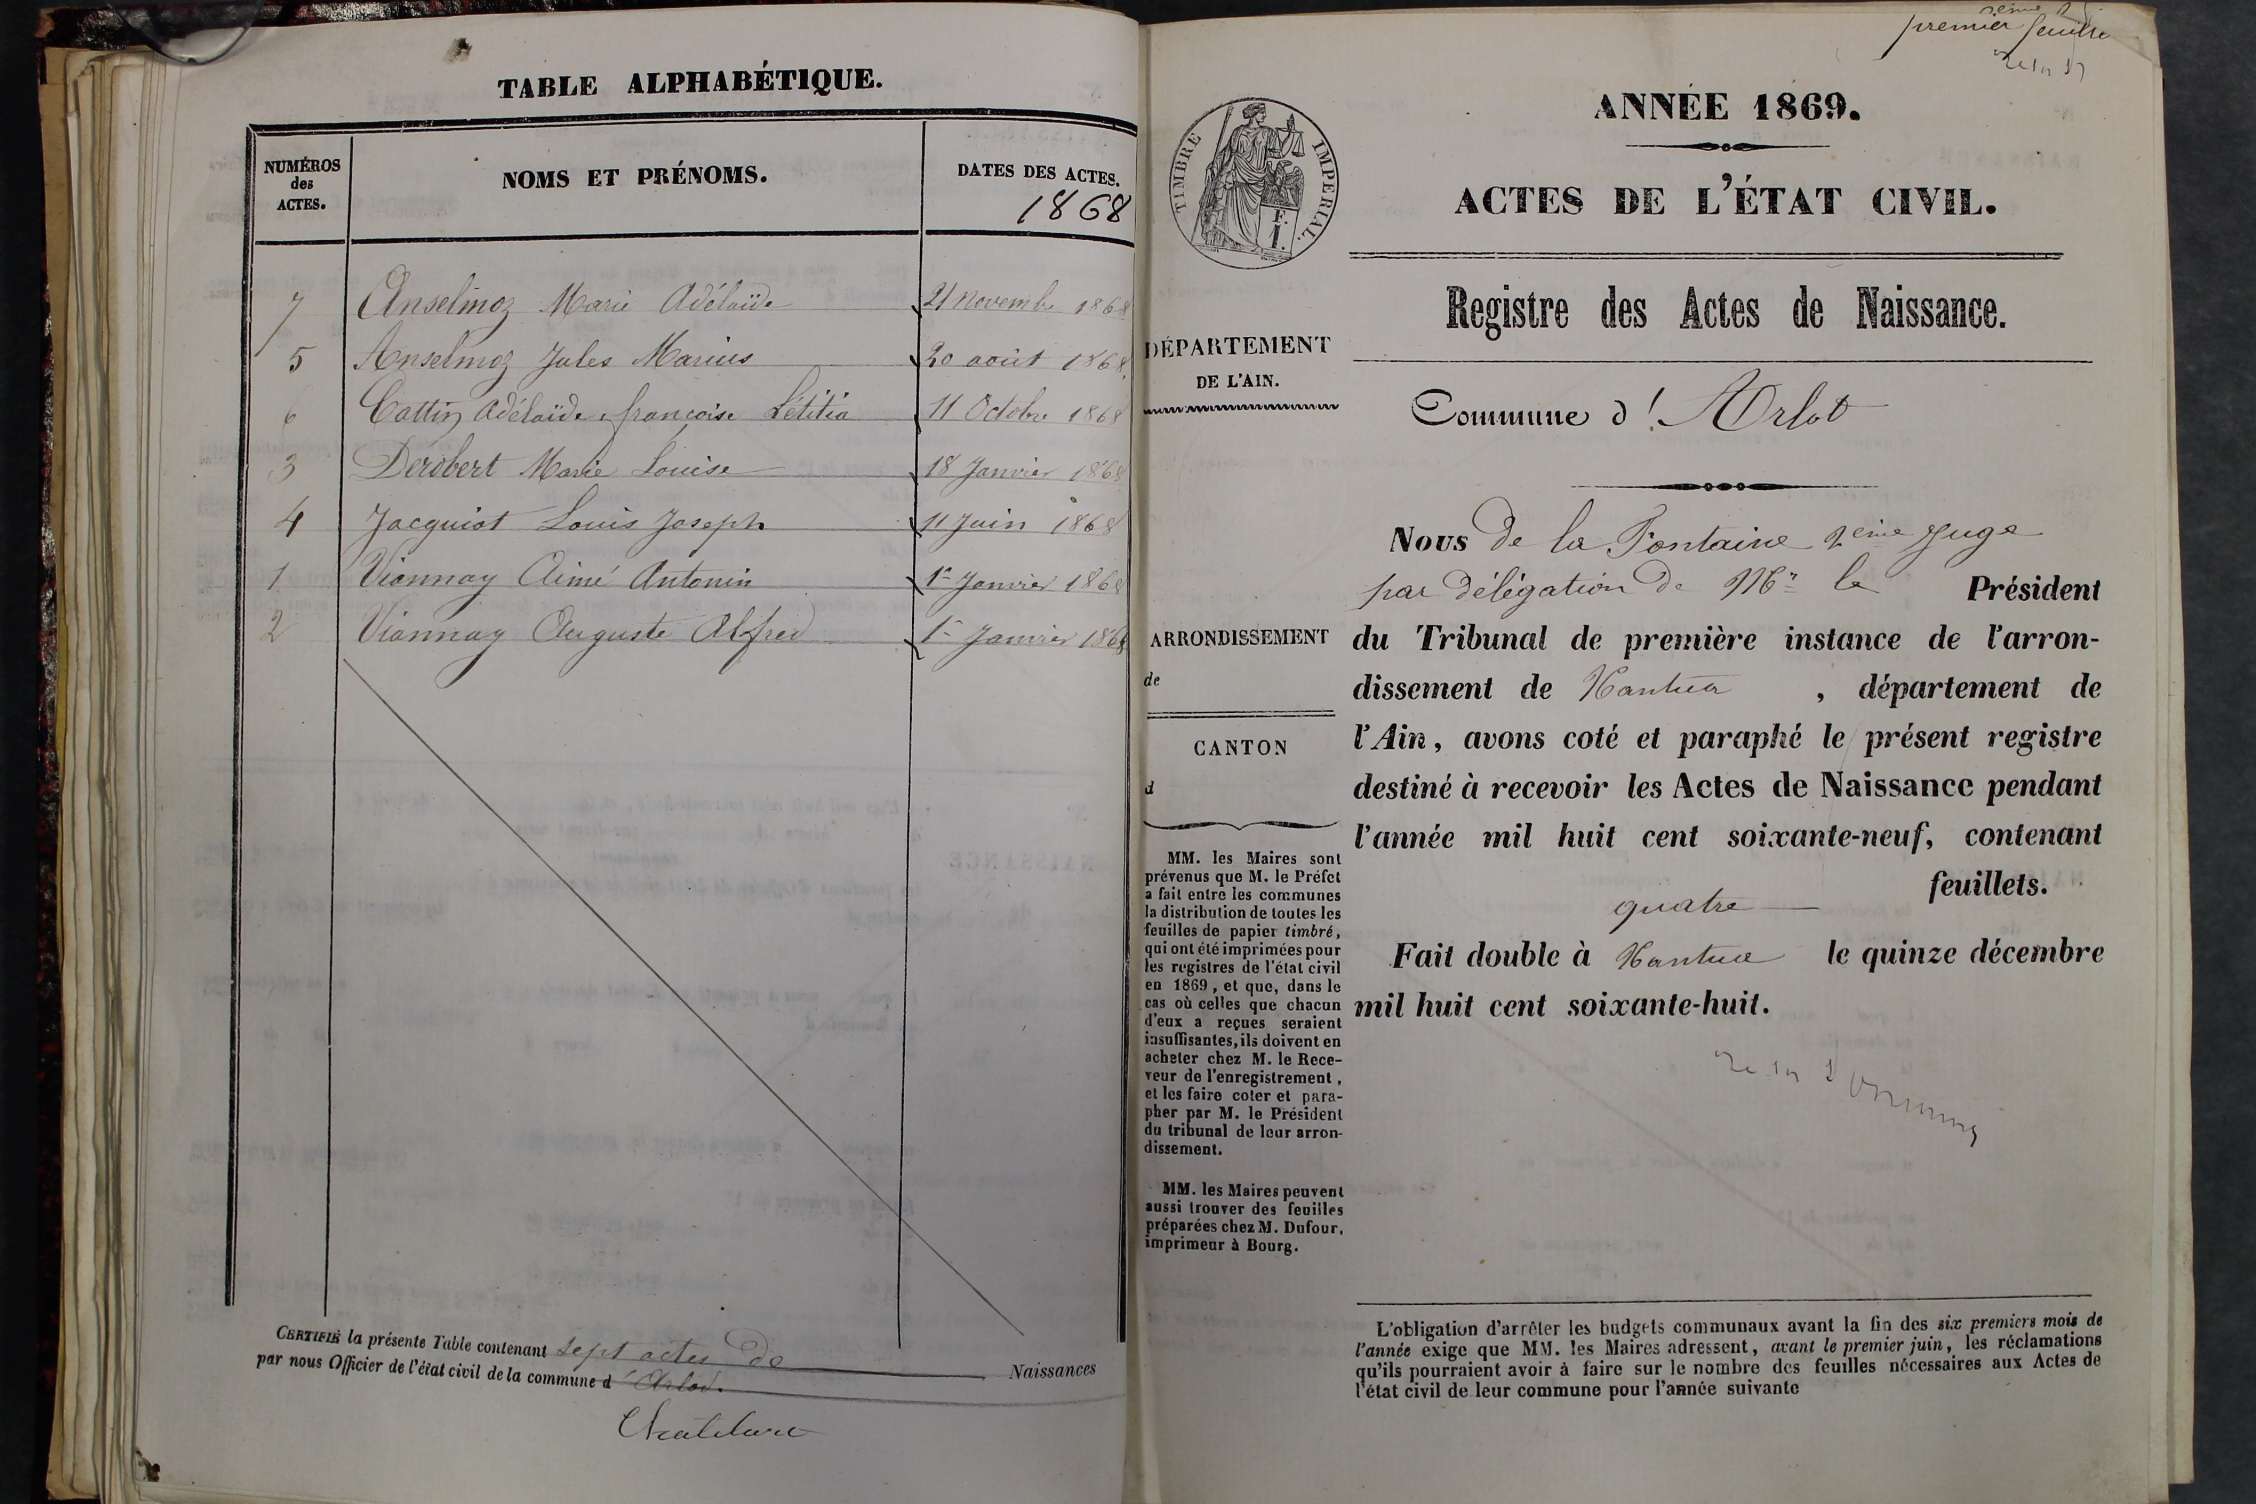 TABLE ALPHABÉTIQUE.
NUMÉROS
des
ACTES.
NOMS ET PRÉNOMS.
DATES DES ACTES.
1868
7 Anselmoz Marie Adélaïde 21 novembre 1868
5 Anselmoz Jules Marius 20 août 1868
6 Cottin Adélaïde françoise Létitia 11 Octobre 1868
3 Derobert Marie Louise 18 Janvier 1868
4 Jacquiot Louis Joseph 11 Juin 1868
1 Vionnay Aimé Antonin 1er Janvier 1868
2 Vionnay Auguste Alfred 1er Janvier 1868
CERTIFIÉ la présente Table contenant sept actes de Naissances
par nous Officier de l'état civil de la commune d'Arlod.
premier feuille
TIMBRE IMPERIAL.
E.
1.
DÉPARTEMENT
DE L'AIN.
ARRONDISSEMENT
de
CANTON
d
MM. les Maires sont
prévenus que M. le Préfet
a fait entre les communes
la distribution de toutes les
feuilles de papier timbré,
qui ont été imprimées pour
les registres de l'état civil
en 1869, et que, dans le
cas où celles que chacun
d'eux a reçues seraient
insuffisantes, ils doivent en
acheter chez M. le Rece-
veur de l'enregistrement,
et les faire coter et para-
pher par M. le Président
du tribunal de leur arron-
dissement.
MM. les Maires peuvent
aussi trouver des feuilles
préparées chez M. Dufour,
imprimeur à Bourg.
ANNÉE 1869.
ACTES DE L'ÉTAT CIVIL.
Registre des Actes de Naissance.
Commune d'Arlot
Nous De la Fontaine 2eme Juge
par délégation de Mr le Président
du Tribunal de première instance de l'arron-
dissement de Nantua , département de
l'Ain, avons coté et paraphé le présent registre
destiné à recevoir les Actes de Naissance pendant
l'année mil huit cent soixante-neuf, contenant
quatre feuillets.
Fait double à Nantua le quinze décembre
mil huit cent soixante-huit.
L'obligation d'arrêter les budgets communaux avant la fin des six premiers mois de
l'année exige que MM. les Maires adressent, avant le premier juin, les réclamations
qu'ils pourraient avoir à faire sur le nombre des feuilles nécessaires aux Actes de
l'état civil de leur commune pour l'année suivante